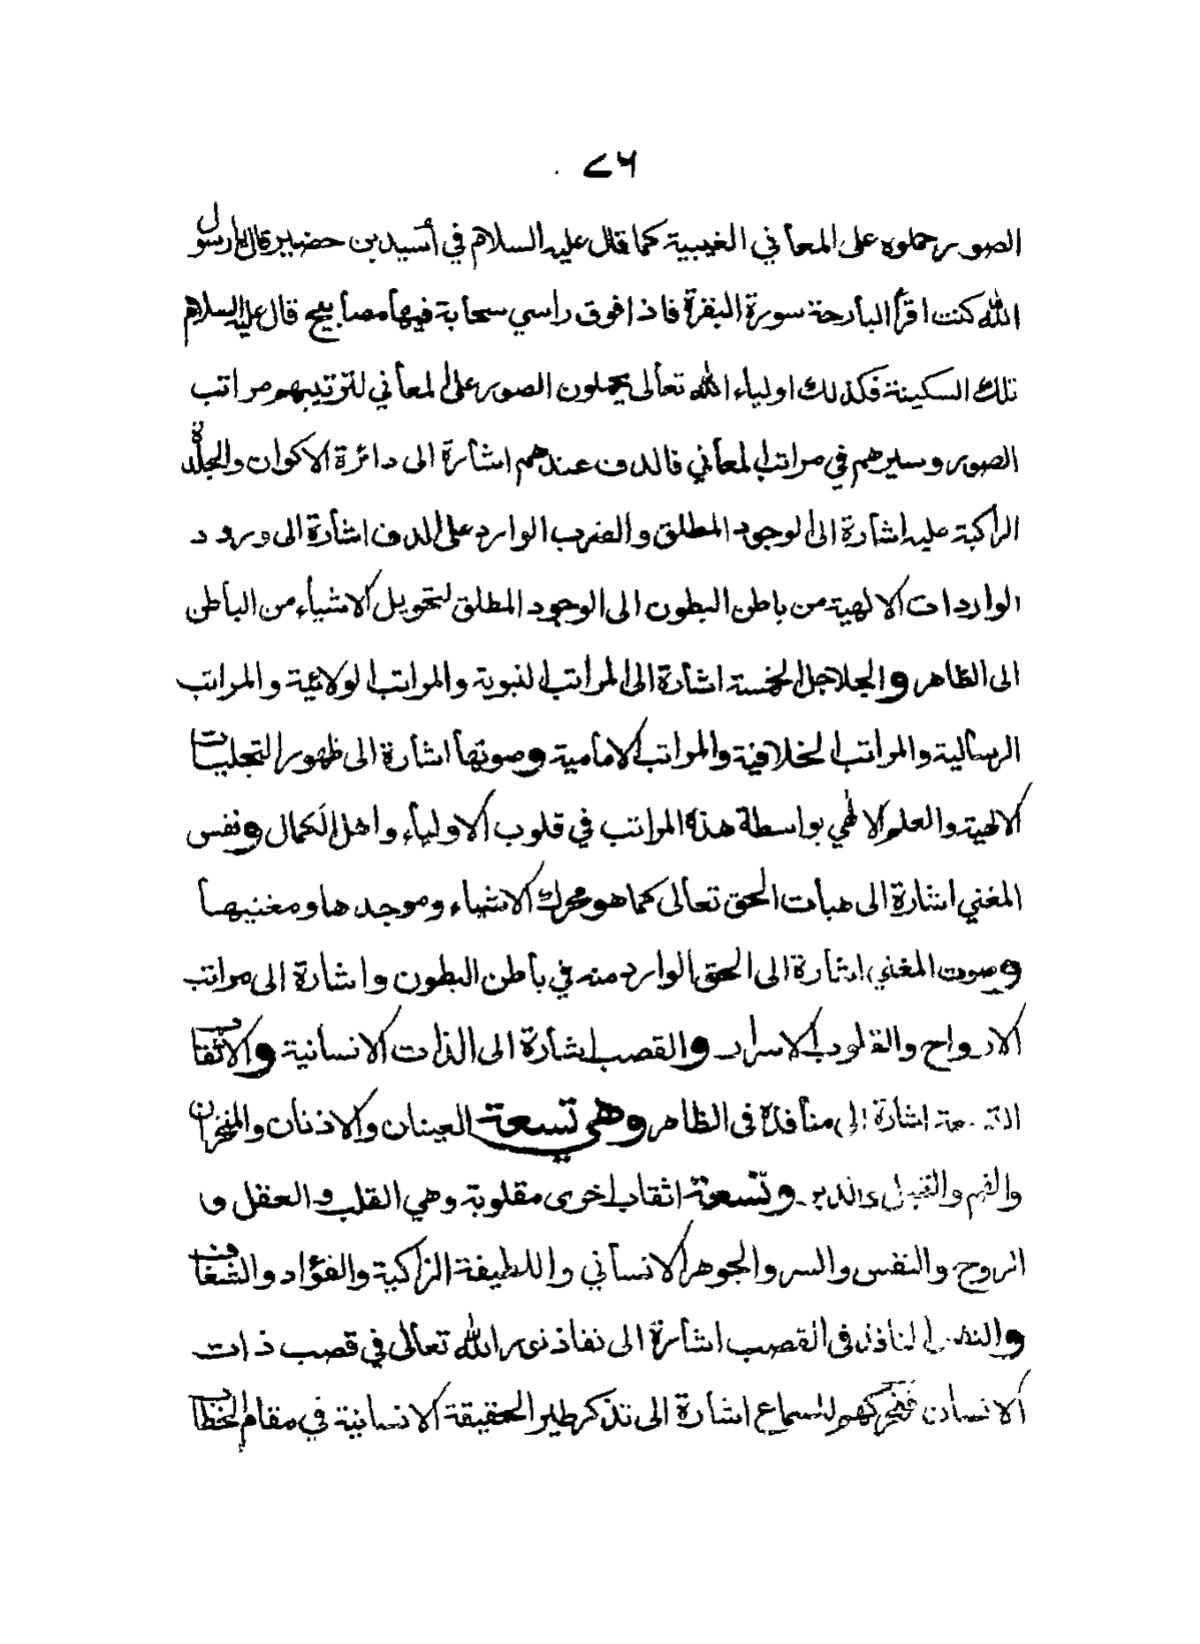 ٧٦
الصور حملوه على المعاني الغيبية كما قال عليه السلام في أسيد بن حضير قال يا رسول
الله كنت اقرأ البارحة سورة البقرة فاذا فوق راسي سحابة فيها مصابيح قال عليه السلام
تلك السكينة فكذلك اولياء الله تعالى يحملون الصور على المعاني لترتيبهم مراتب
الصور وسيرهم في مراتب المعاني فالدف عندهم اشارة الى دائرة الاكوان والجلدة
الراكبة عليه اشارة الى الوجود المطلق والضرب الوارد على الدف اشارة الى ورود
الواردات الالهية من باطن البطون الى الوجود المطلق لتحويل الاشياء من الباطن
الى الظاهر والجلاجل الخمسة اشارة الى المراتب النبوية والمراتب الولائية والمراتب
الرسالية والمراتب الخلافية والمراتب الامامية وصوتها اشارة الى ظهور التجليات
الالهية والعلم الالهي بواسطة هذه المراتب في قلوب الاولياء واهل الكمال ونفس
المغني اشارة الى هبات الحق تعالى كما هو محرك الاشياء وموجدها ومغنيها
وصوت المغني اشارة الى الحق الوارد منه في باطن البطون واشارة الى مراتب
الارواح والقلوب الاسرار والقصب اشارة الى الذات الانسانية والاثقاب
اشارة الى منافذه في الظاهر وهي تسعة العينان والاذنان والمنخران
والفم والقبل والدبر وتسعة اثقاب اخرى مقلوبة وهي القلب والعقل و
الروح والنفس والسر والجوهر الانساني واللطيفة الزاكية والفؤاد والشغاف
النافذ في القصب اشارة الى نفاذ نور الله تعالى في قصب ذات
الانسان فتحركهم للسماع اشارة الى تذكر طير الحقيقة الانسانية في مقام الخطاب